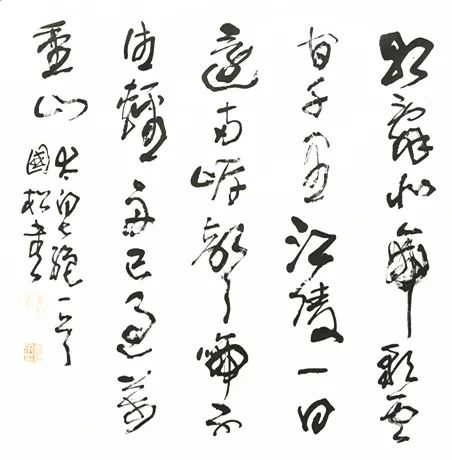 朝辭白帝彩雲
間千里江陵一日
還兩岸猿聲啼不
住輕舟已過萬
重山
太白七絕一首
國松書